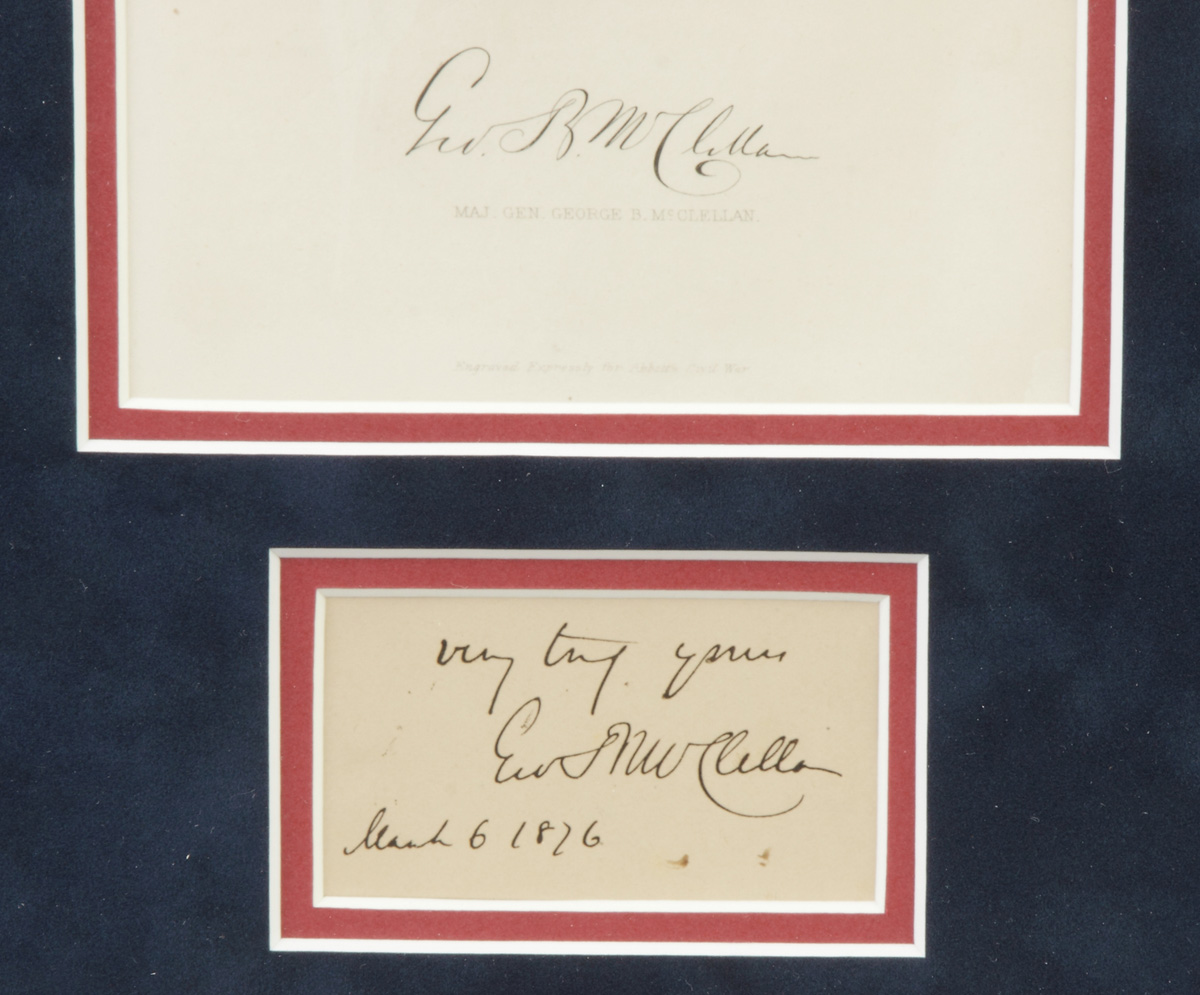 Geo. B. McClellan
MAJ. GEN. GEORGE B. McCLELLAN.
Engraved Expressly for Abbott's Civil War
very truly yours
Geo B McClellan
March 6 1876